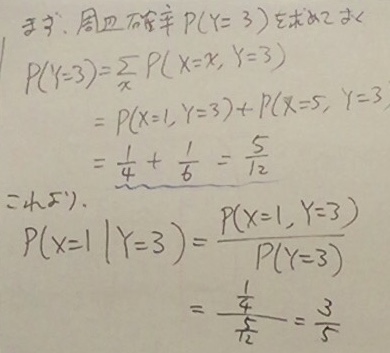 まず、周辺確率 P(Y=3)を求めておく
P(Y=3)=∑x P(X=x, Y=3)
= P(X=1, Y=3)+P(X=5, Y=3
= 1/4 + 1/6 = 5/12
これより、
P(X=1|Y=3) = P(X=1, Y=3)/P(Y=3)
= (1/4)/(5/12) = 3/5